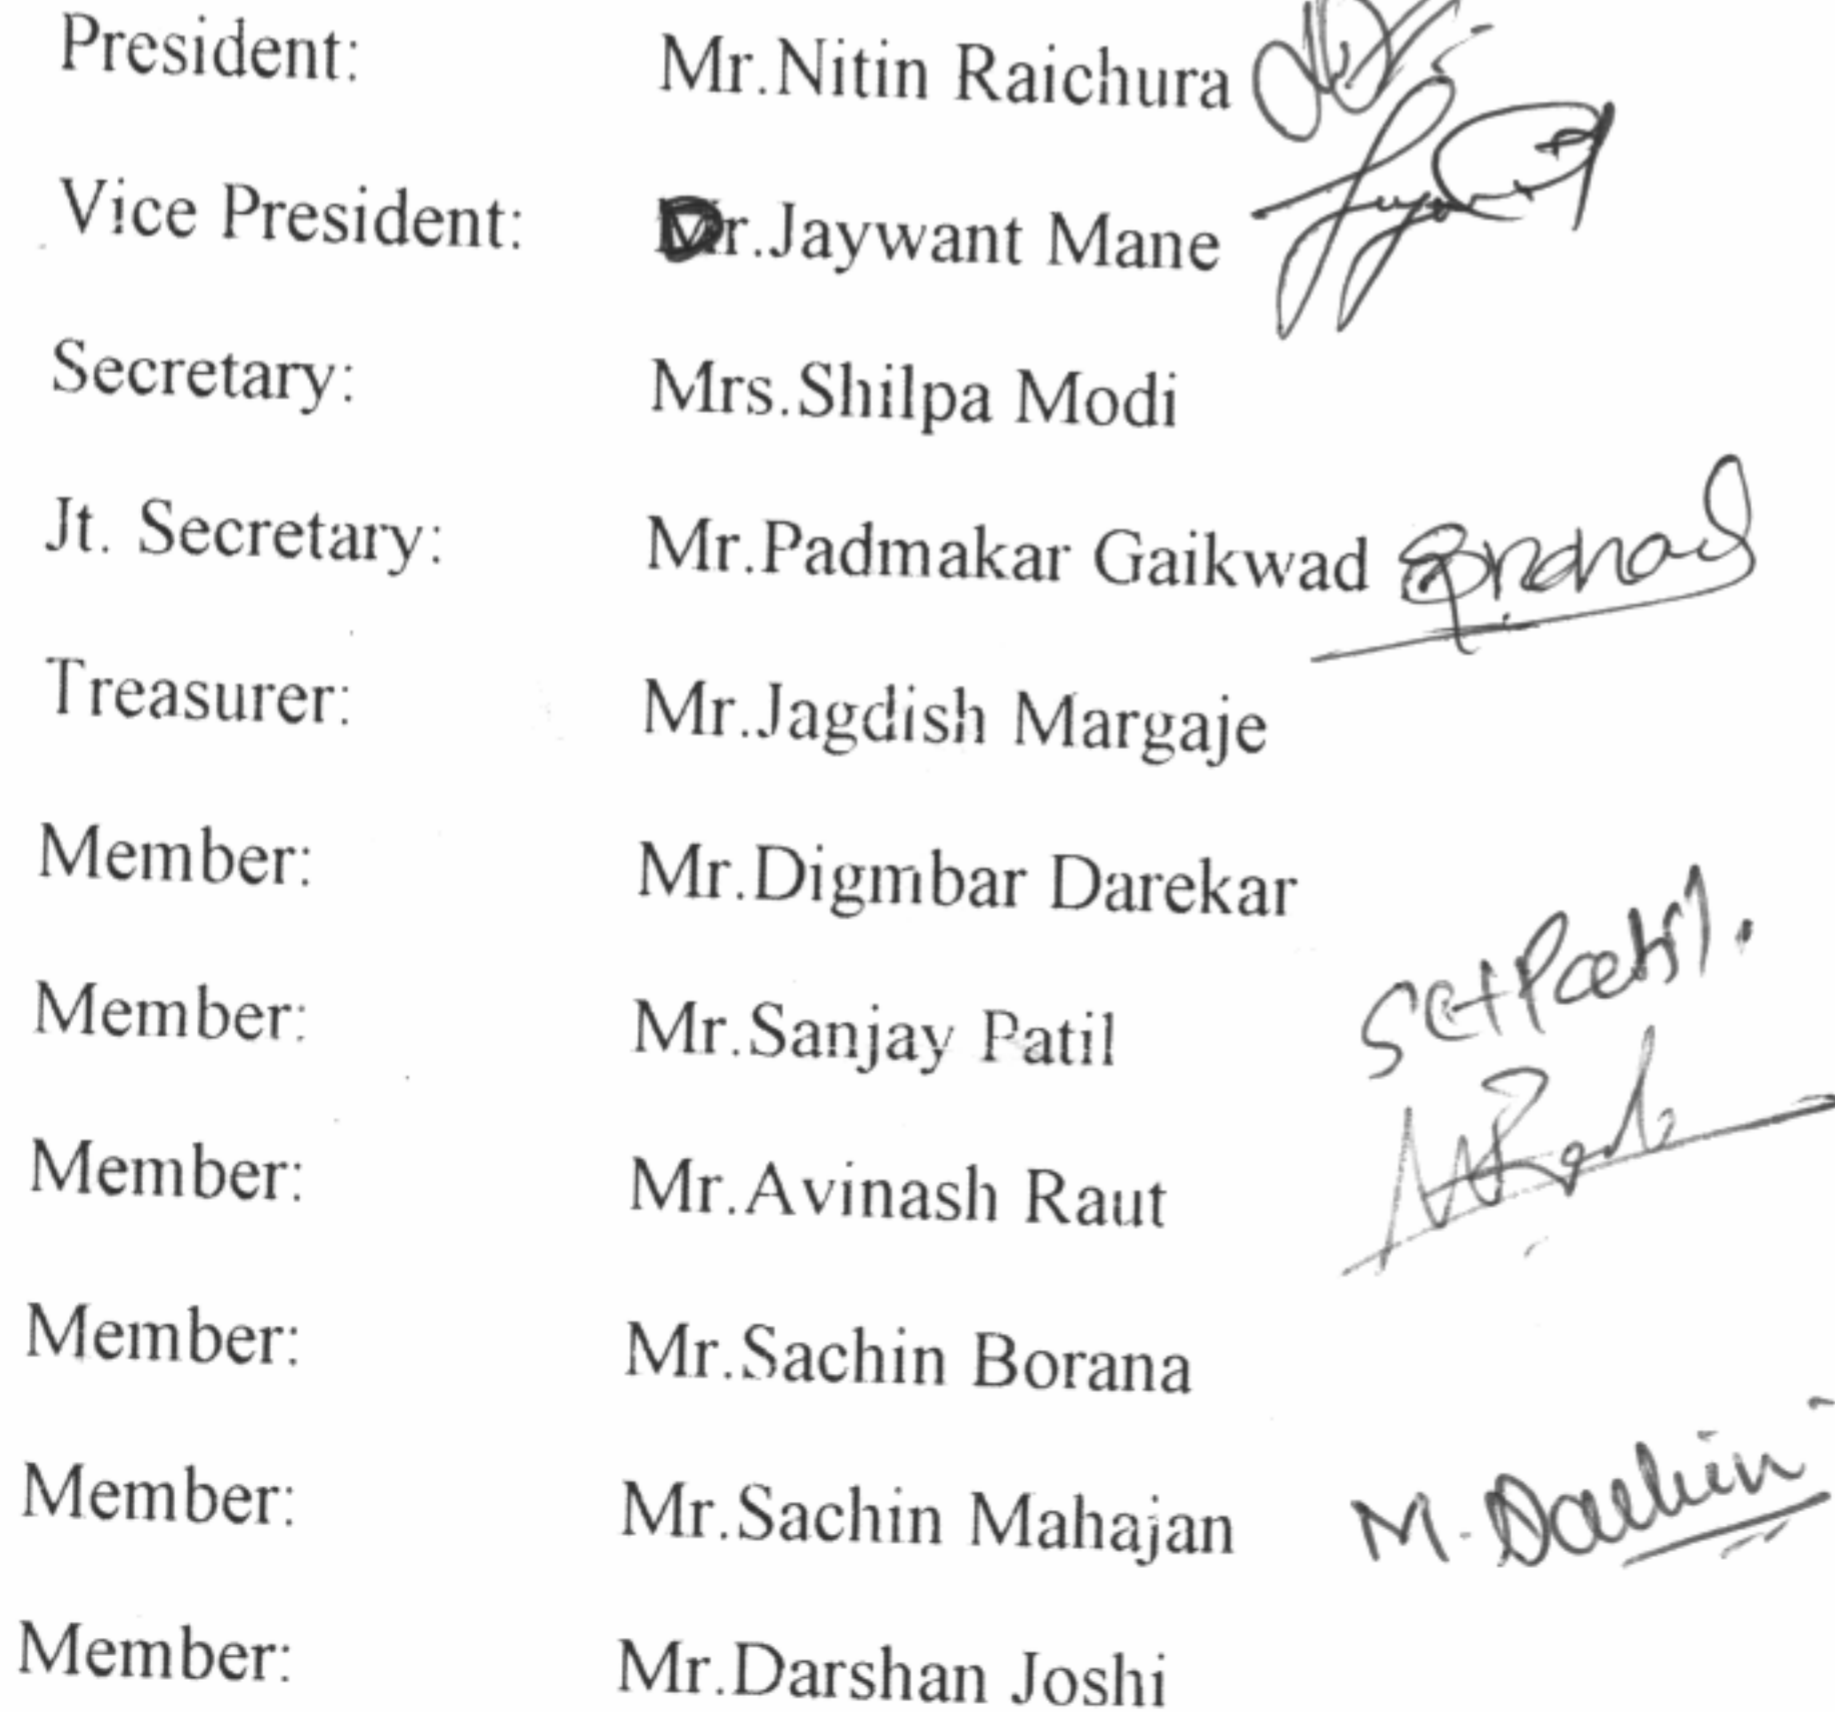 President: Mr.Nitin Raichura
Vice President: Dr.Jaywant Mane
Secretary: Mrs.Shilpa Modi
Jt. Secretary: Mr.Padmakar Gaikwad
Treasurer: Mr.Jagdish Margaje
Member: Mr.Digmbar Darekar
Member: Mr.Sanjay Patil
Member: Mr.Avinash Raut
Member: Mr.Sachin Borana
Member: Mr.Sachin Mahajan
Member: Mr.Darshan Joshi